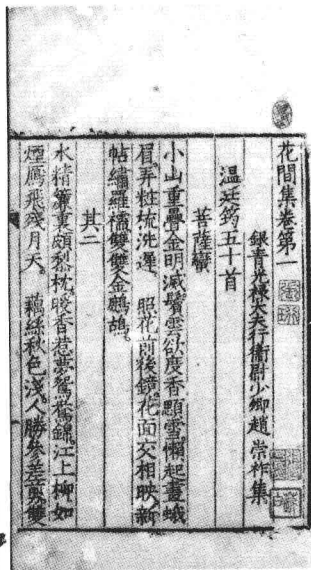 花間集卷第一
銀青光祿大夫行衛尉少卿趙 崇祚集
溫廷筠五十首
菩薩蠻
小山重疊金明滅鬢雲欲度香顋雪懶起畫蛾
眉弄粧梳洗遲 照花前後鏡花面交相映新
帖繡羅襦雙雙金鷓鴣
其二
水精簾裏頗黎枕暖香惹夢鴛鴦錦江上柳如
煙鴈飛殘月天 藕絲秋色淺人勝參差剪雙